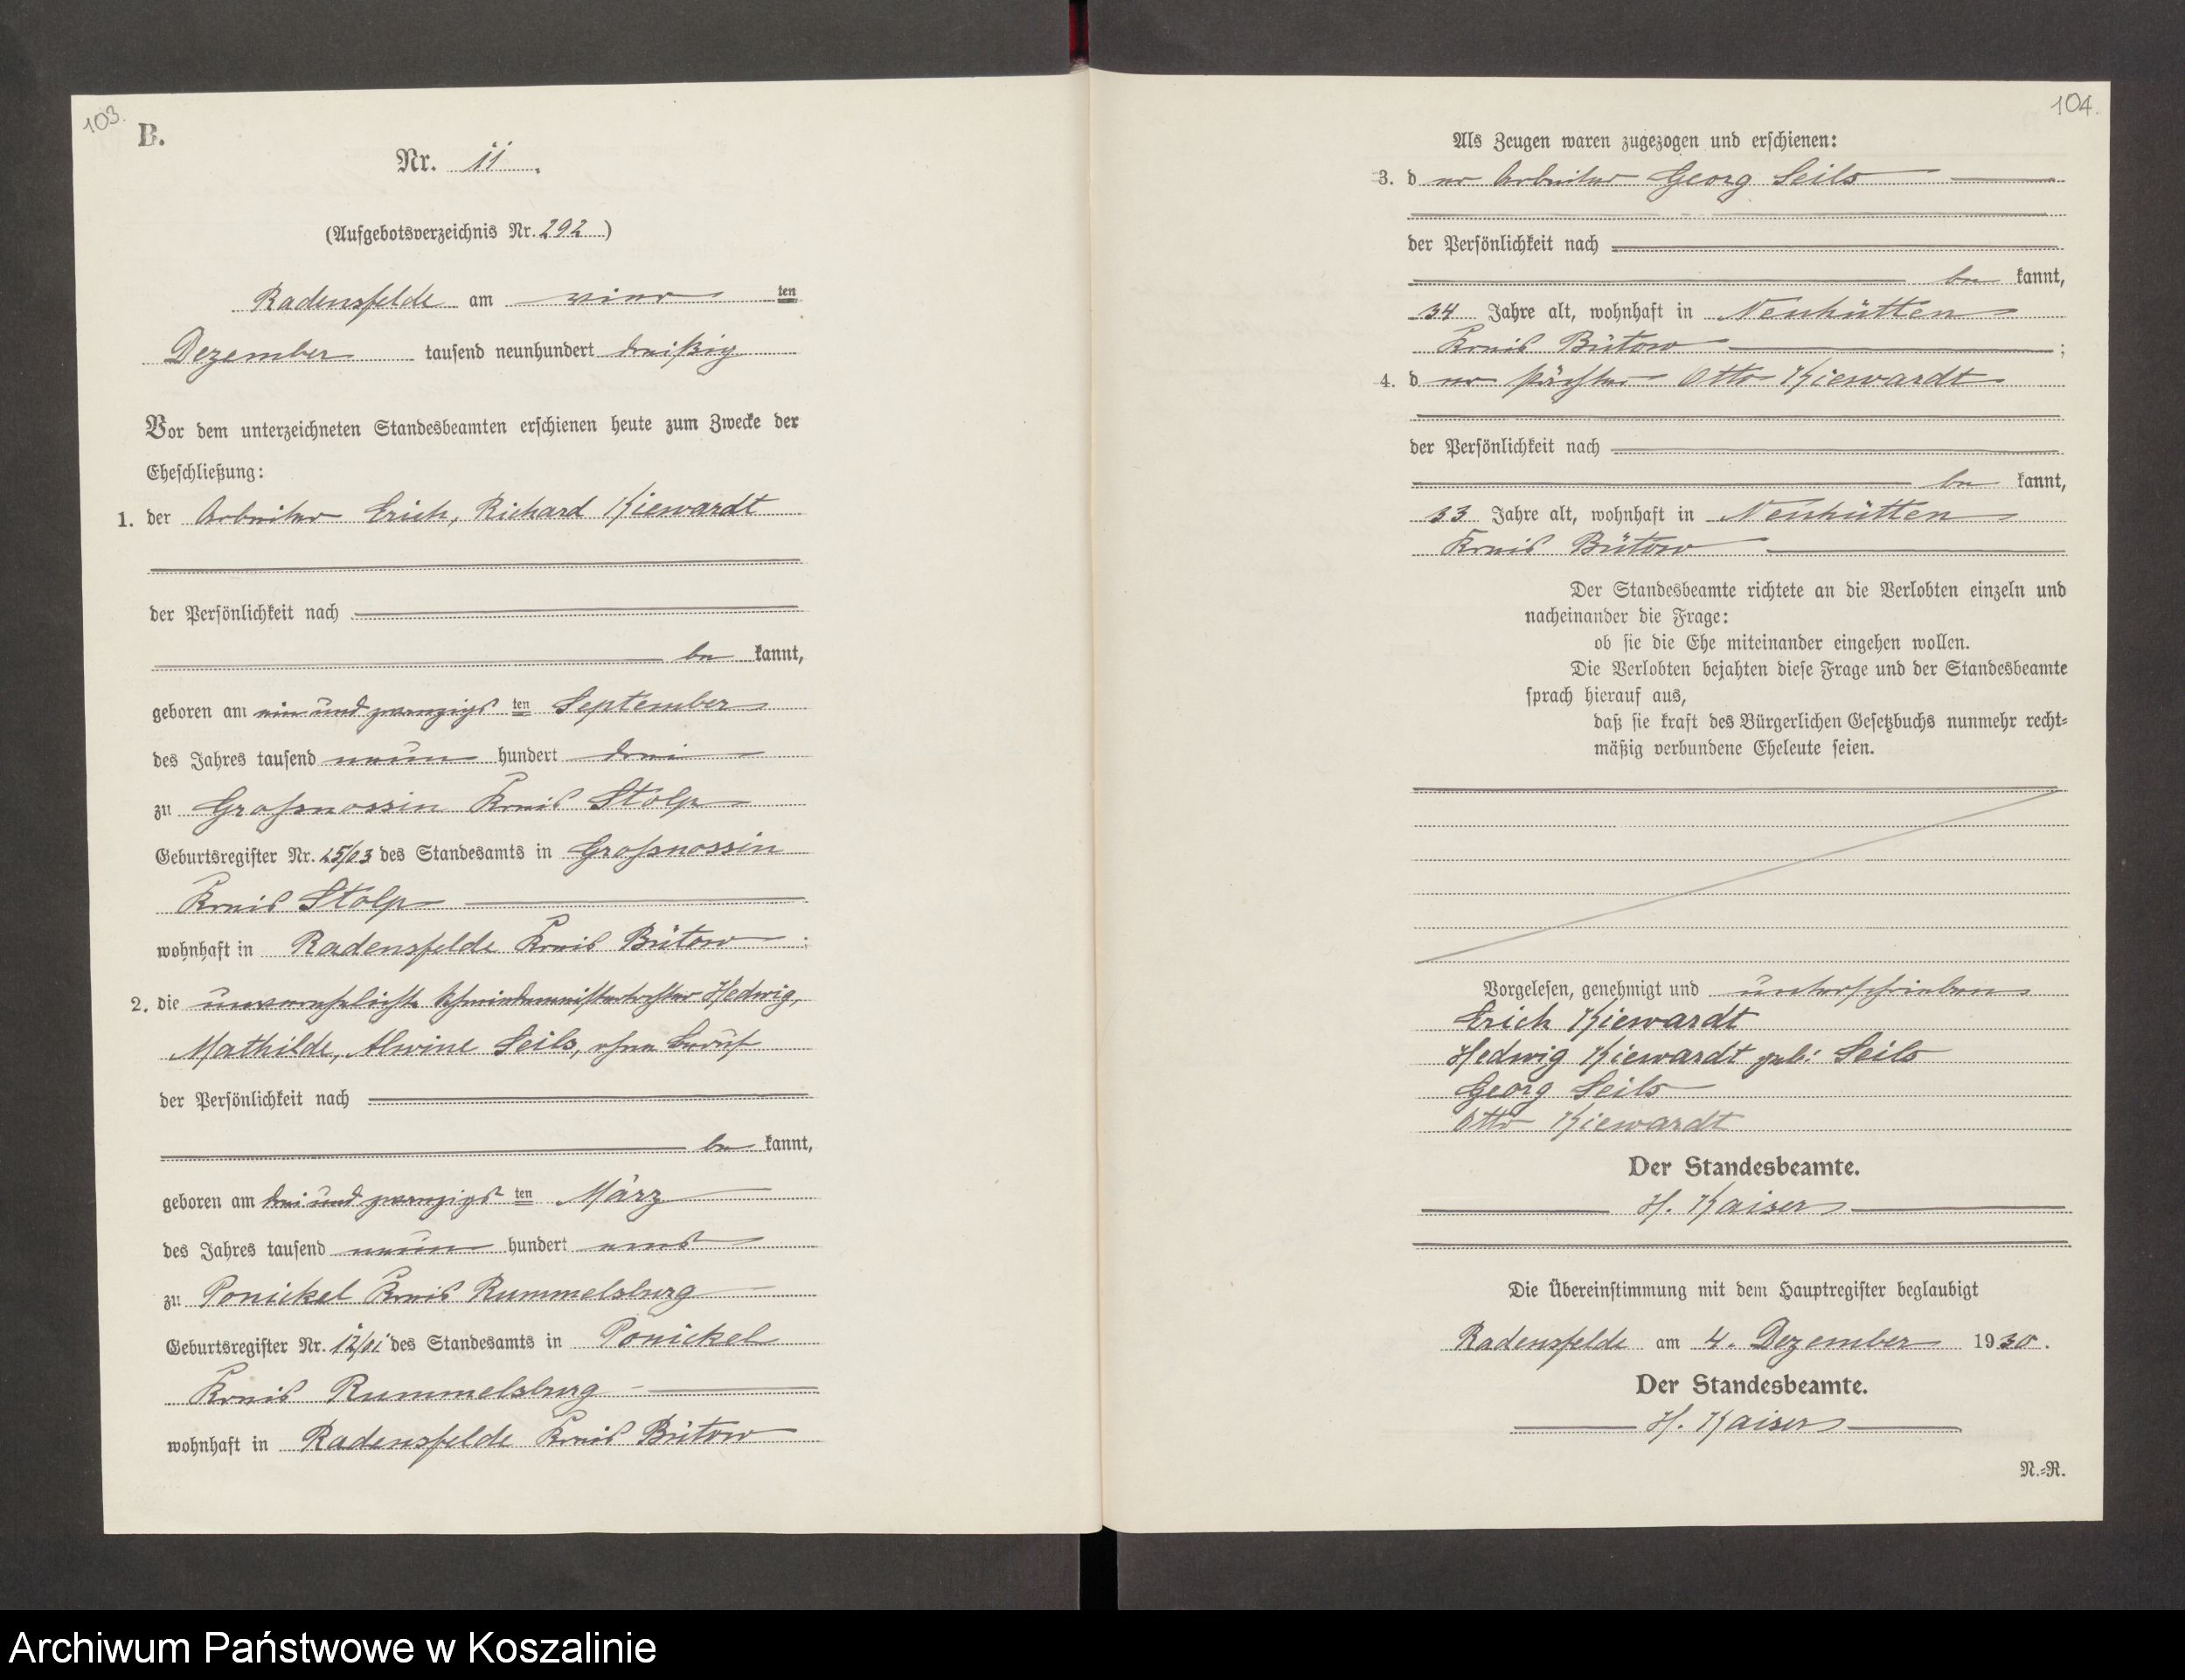 103.
B.
Nr. 11.
(Aufgebotsverzeichnis Nr. 292)
Radensfelde am vier ten
Dezember tausend neunhundert dreißig
Vor dem unterzeichneten Standesbeamten erschienen heute zum Zwecke der
Eheschließung:
1. der Arbeiter Erich, Richard Kiewardt
der Persönlichkeit nach
be kannt,
geboren am ein und zwanzigs ten September
des Jahres tausend neun hundert drei
zu Großnossin Kreis Stolp
Geburtsregister Nr. 25/03 des Standesamts in Großnossin
Kreis Stolp
wohnhaft in Radensfelde Kreis Bütow;
2. die unverehelichte Schneidermeistertochter Hedwig,
Mathilde, Alwine Seils, ohne Beruf
der Persönlichkeit nach
be kannt,
geboren am drei und zwanzigs ten März
des Jahres tausend neun hundert eins
zu Ponickel Kreis Rummelsburg
Geburtsregister Nr. 12/01 des Standesamts in Ponickel
Kreis Rummelsburg
wohnhaft in Radensfelde Kreis Bütow
104.
Als Zeugen waren zugezogen und erschienen:
3. d er Arbeiter Georg Seils
der Persönlichkeit nach
be kannt,
34 Jahre alt, wohnhaft in Neuhütten
Kreis Bütow;
4. d er Pächter Otto Kiewardt
der Persönlichkeit nach
be kannt,
33 Jahre alt, wohnhaft in Neuhütten
Kreis Bütow
Der Standesbeamte richtete an die Verlobten einzeln und
nacheinander die Frage:
ob sie die Ehe miteinander eingehen wollen.
Die Verlobten bejahten diese Frage und der Standesbeamte
sprach hierauf aus,
daß sie kraft des Bürgerlichen Gesetzbuchs nunmehr recht-
mäßig verbundene Eheleute seien.
Vorgelesen, genehmigt und unterschrieben
Erich Kiewardt
Hedwig Kiewardt geb. Seils
Georg Seils
Otto Kiewardt
Der Standesbeamte.
H. Kaiser
Die Übereinstimmung mit dem Hauptregister beglaubigt
Radensfelde am 4. Dezember 1930.
Der Standesbeamte.
H. Kaiser
N.-R.
Archiwum Państwowe w Koszalinie